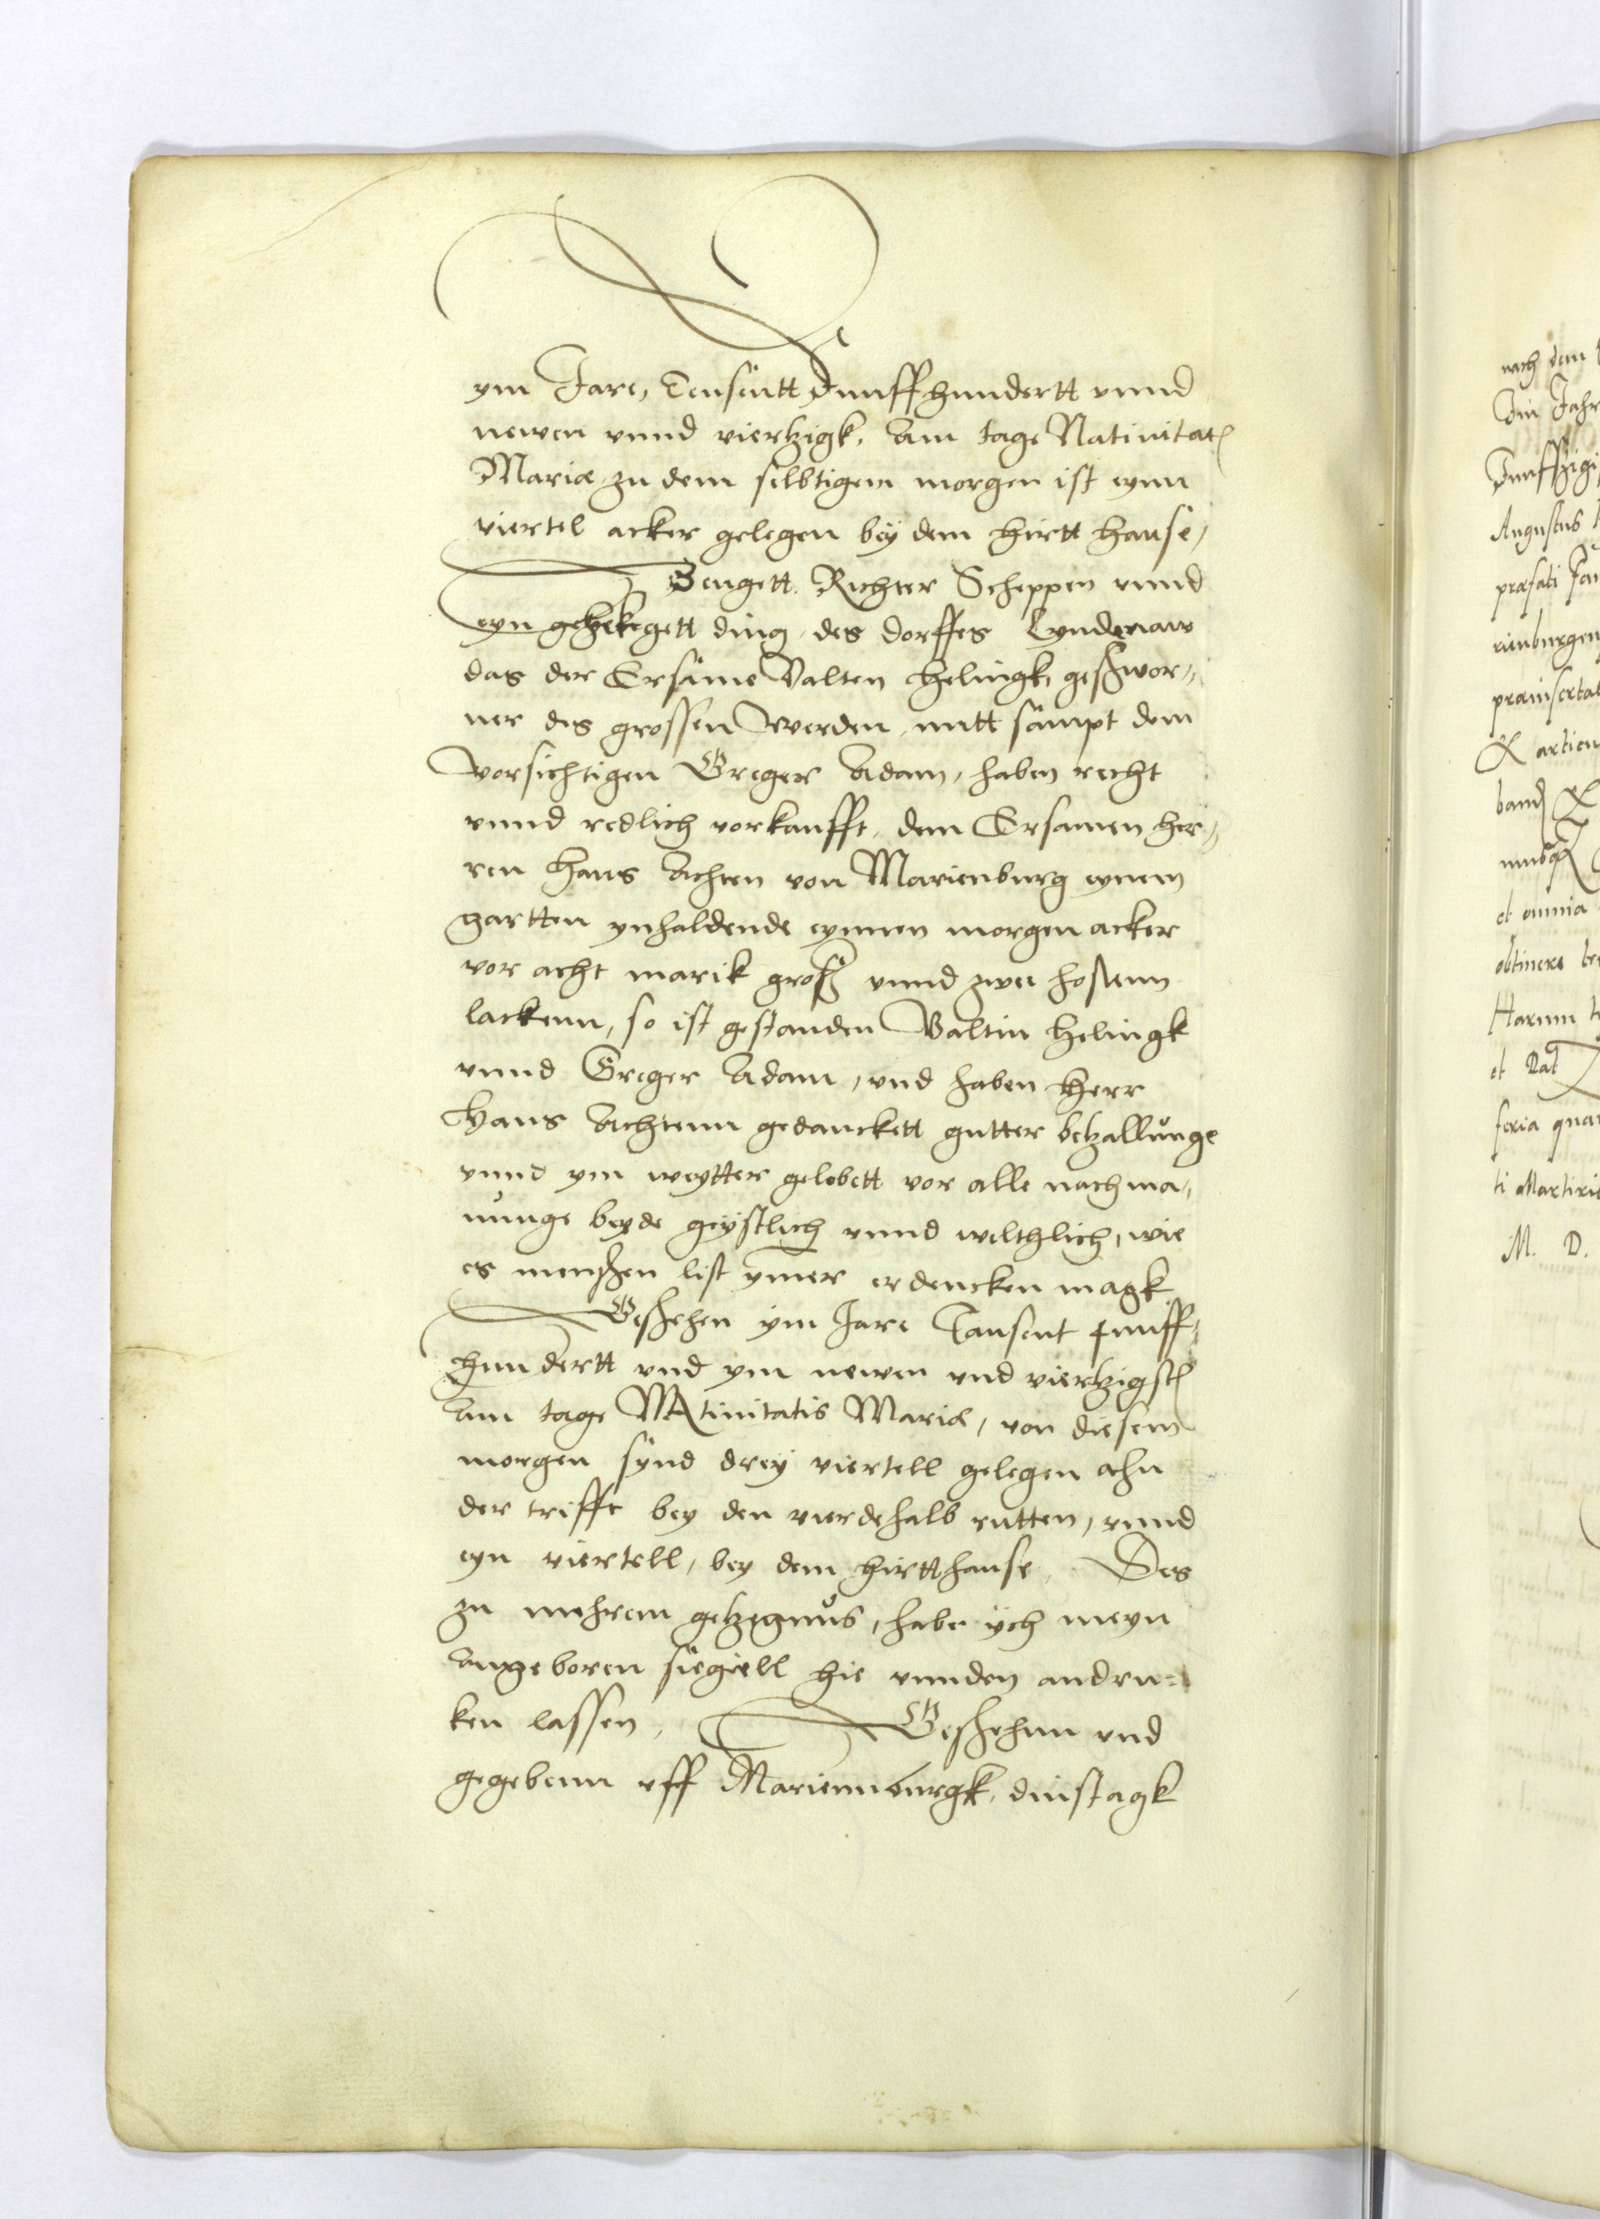 ym Jare, Tausentt Funffhundertt unnd
newen unnd viertzigk. Am tage Nativitatis
Mariæ zu dem selbtigem morgen ist eynn
viertel acker gelegen bey dem hirtt hause,
Zeugett Richter Scheppen unnd
eyn gehegett ding, des dorffes Lyndenaw
das der Ersame Valten Helingk, geschwor„
ner des grossen Werden mitt sampt dem
vorsichtigen Greger Adam, haben recht
unnd redlich vorkaufft, dem Ersamen her„
ren Hans Achten von Marienburg eynem
gartten ynhaldende eynnen morgen acker
vor acht marik grosch unnd zwei hosenn
lackenn, so ist gestanden Valtin Helingk
unnd Greger Adam, und haben Herr
Hans Achtenn gedanckett gutter betzallunge
unnd ym weytter gelobett vor alle nachma„
nunge beyde geystlich unnd welthlich, wie
es menschen list ymmer erdencken magk
Geschehen ym Jare Tausent Funff„
hundertt und ym newen und viertzigsten
Am tage Nativitatis Mariæ, von diesem
morgen synd drey viertell gelegen ahn
der trifft bey den vierdehalb rutten, unnd
eyn viertell, bey dem hirtthause. Des
zu mehrem getzegnus, habe ych meyn
Angeboren siegiell hie unnden andru=
ken lassen. Geschehnn und
gegebenn uff Mariennburgk, dinstagk
nach dem
Im Jahr
Funffzigi
Augustus
præsati
rienburgen
præinsertat
Et articu
band Et
et omnia
obtinere
Harum
et Dat
feria quar
ti Martiri
M. D.